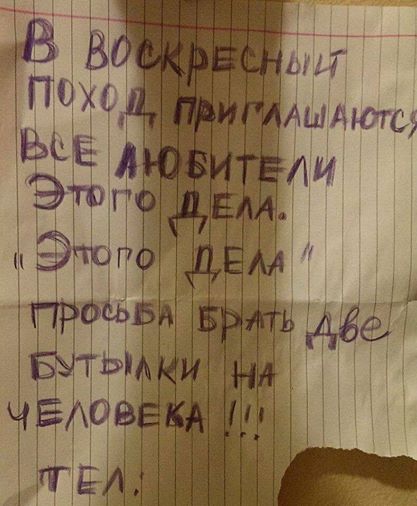 В ВОСКРЕСНЫЙ
ПОХОД, ПРИГЛАШАЮТСЯ
ВСЕ ЛЮБИТЕЛИ
ЭТОГО ДЕЛА.
„ЭТОГО ДЕЛА"
ПРОСЬБА БРАТЬ ДВЕ
БУТЫЛКИ НА
ЧЕЛОВЕКА !!!
ТЕЛ: